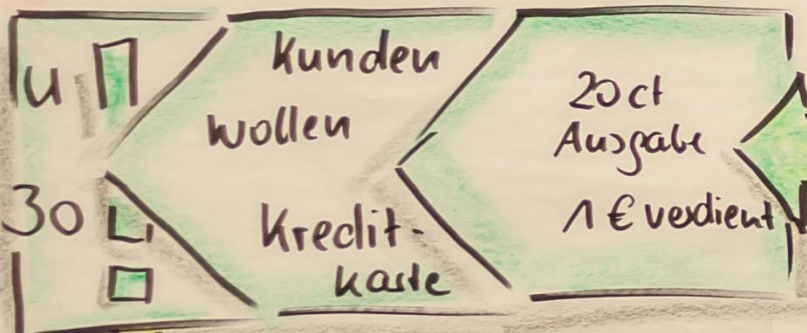 u
30
Kunden
wollen
Kredit-
karte
20ct
Ausgabe
1 € verdient